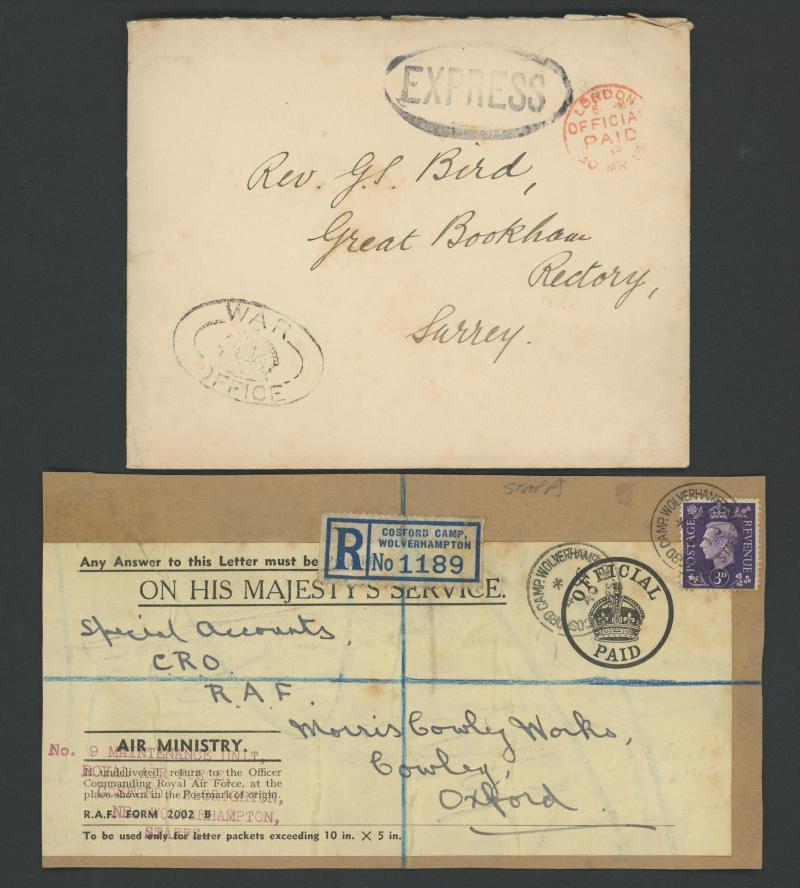 EXPRESS
LONDON
OFFICIAL
PAID
30 MR
Rev. G.S. Bird,
Great Bookham
Rectory,
Surrey.
WAR
OFFICE
STAFFS
COSFORD CAMP,
WOLVERHAMPTON
R No 1189
COSFORD CAMP. WOLVERHAMPTON
COSFORD CAMP. WOLVERHAMPTON
POSTAGE REVENUE
3D
Any Answer to this Letter must be
ON HIS MAJESTY'S SERVICE.
OFFICIAL
PAID
Special Accounts,
C.R.O.
R.A.F.
Morris Cowley Works,
Cowley,
Oxford.
AIR MINISTRY.
No. 9 MAINTENANCE UNIT,
ROYAL AIR FORCE,
WOLVERHAMPTON,
STAFFS
If undelivered, return to the Officer
Commanding Royal Air Force, at the
place shown in the Postmark of origin.
R.A.F. FORM 2002 B
To be used only for letter packets exceeding 10 in. × 5 in.